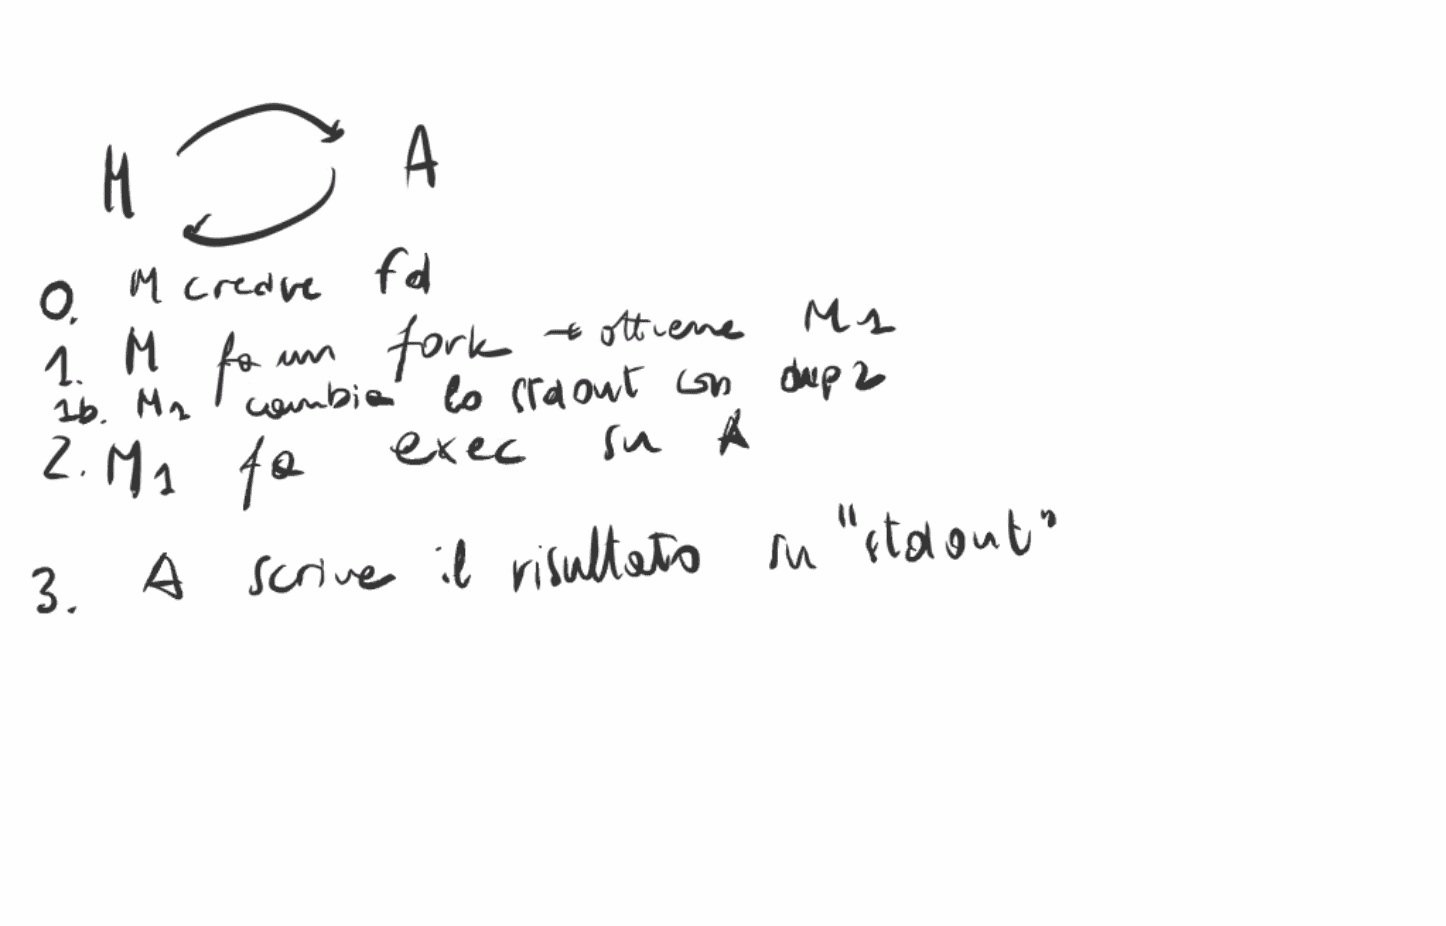 M A
0. M creare fd
1. M fa un fork → ottiene M1
1b. M1 cambia lo stdout con dup2
2. M1 fa exec su A
3. A scrive il risultato su "stdout"